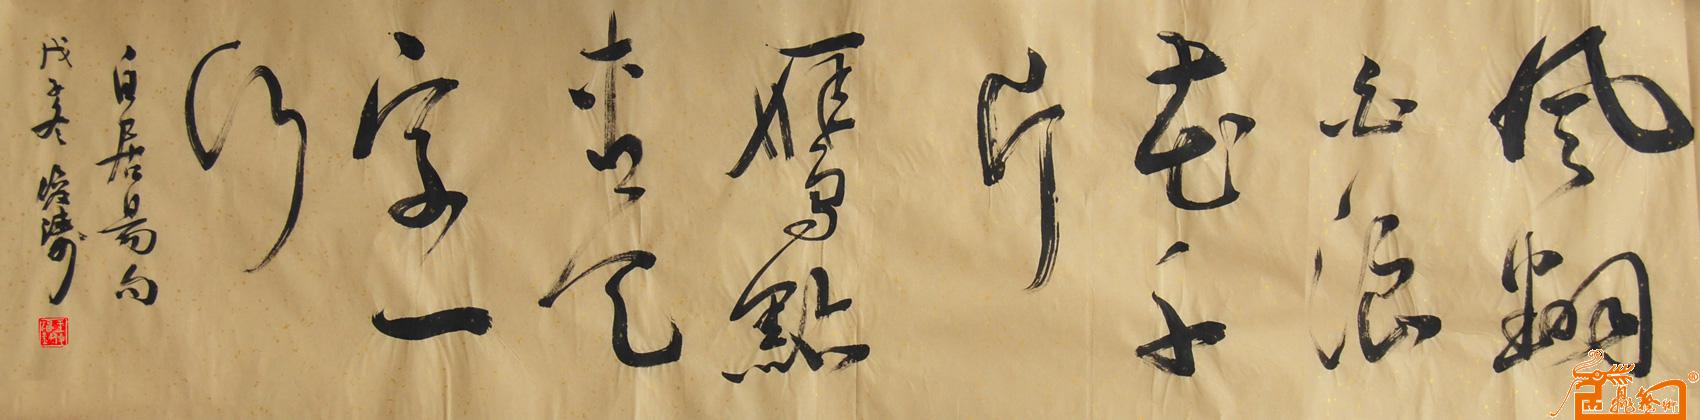 風翻
白浪
花千
片
雁點
青天
字一
行
白居易句
戊子冬